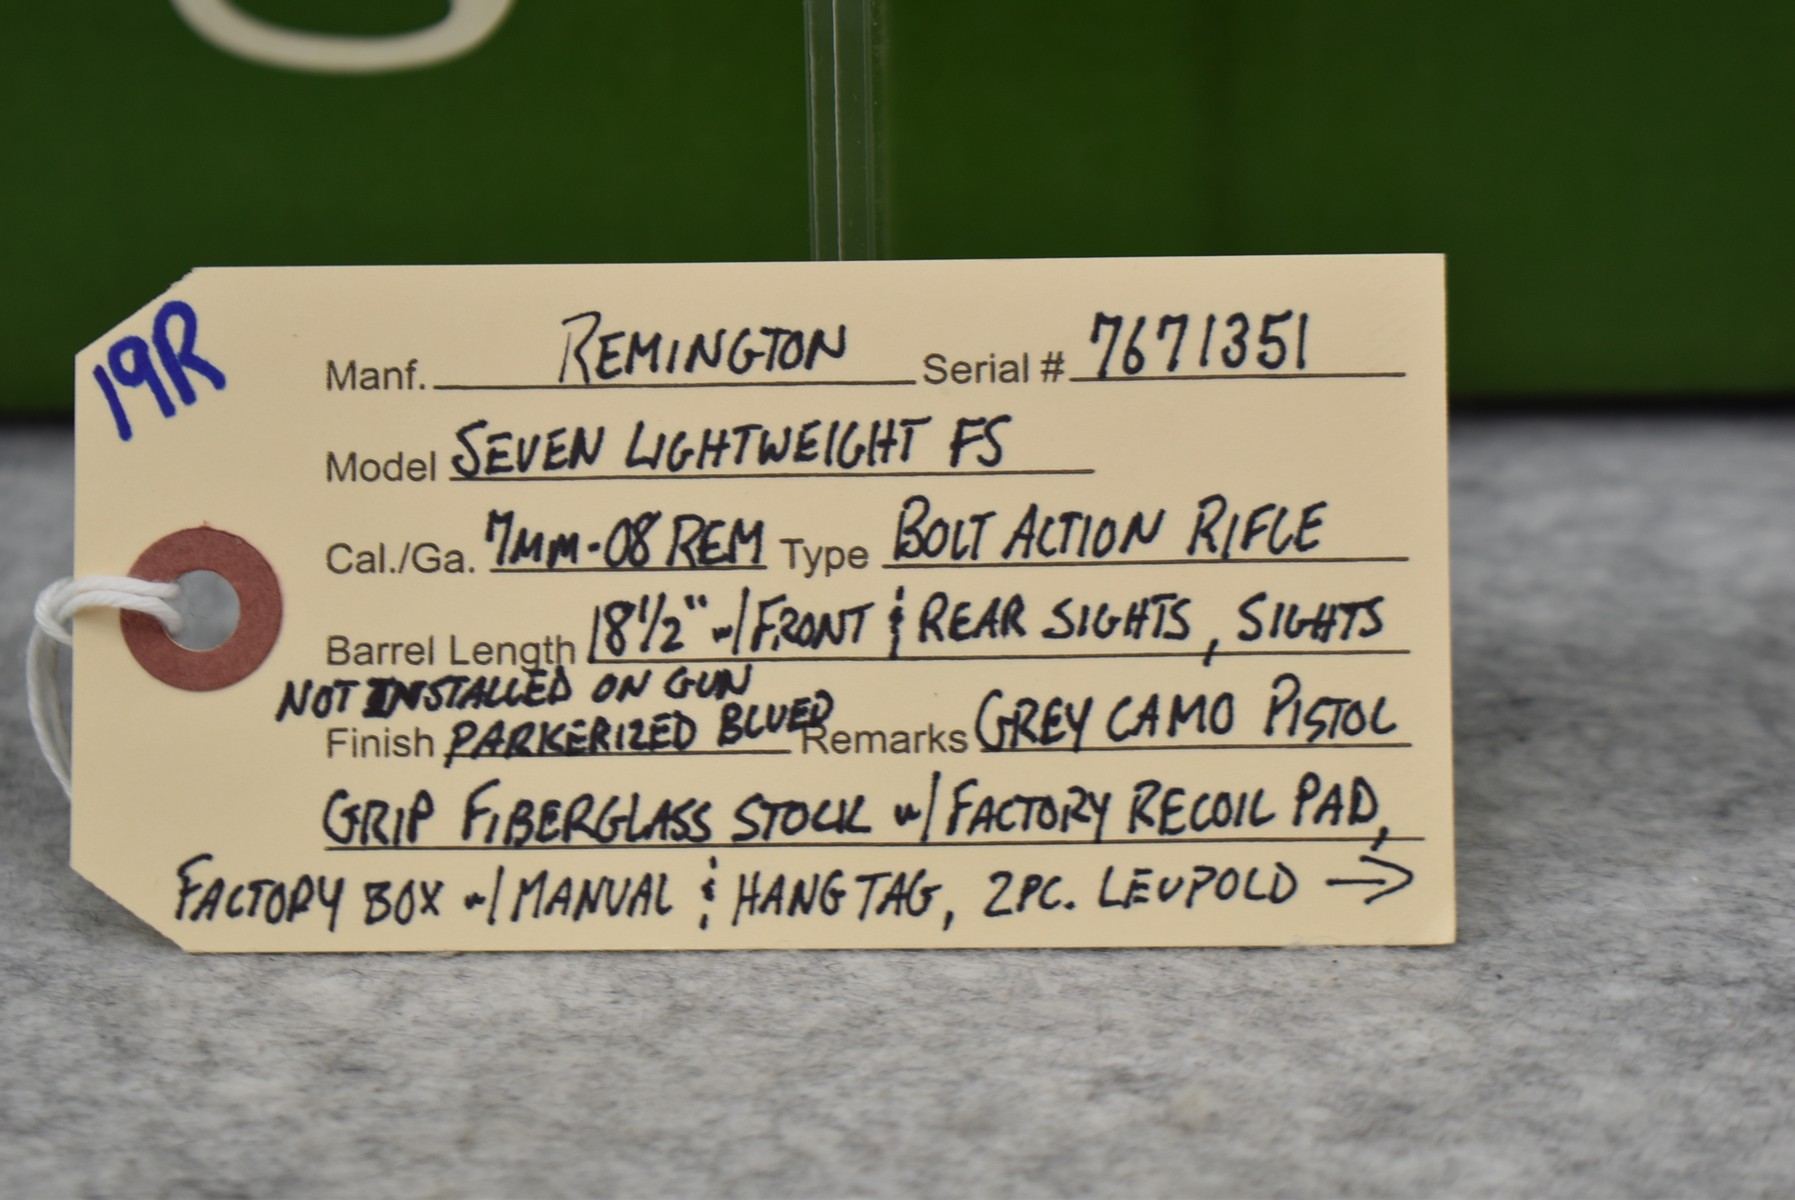 19R
Manf. REMINGTON Serial # 7671351
Model SEVEN LIGHTWEIGHT FS
Cal./Ga. 7MM-08 REM Type BOLT ACTION RIFLE
Barrel Length 18 1/2" w/ FRONT & REAR SIGHTS, SIGHTS
NOT INSTALLED ON GUN
Finish PARKERIZED BLUED Remarks GREY CAMO PISTOL
GRIP FIBERGLASS STOCK w/ FACTORY RECOIL PAD,
FACTORY BOX w/ MANUAL & HANG TAG, 2PC. LEUPOLD →